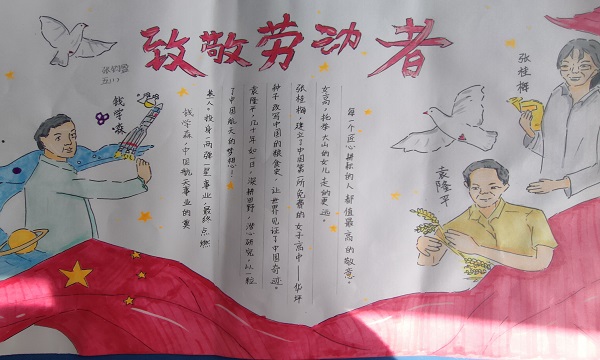 致敬劳动者
五(1)
钱学森
张桂梅
袁隆平
钱学森,中国航天事业的奠
基人。投身两弹一星事业,最终点燃
了中国航天的梦想!
袁隆平,几十年如一日,深耕田野,潜心研究,以一粒
种子改写中国的粮食史,让世界见证了中国奇迹。
张桂梅,建立了中国第一所免费的女子高中——华坪
女高,托举大山的女儿走的更远。
每一个匠心耕耘的人都值最高的敬意。